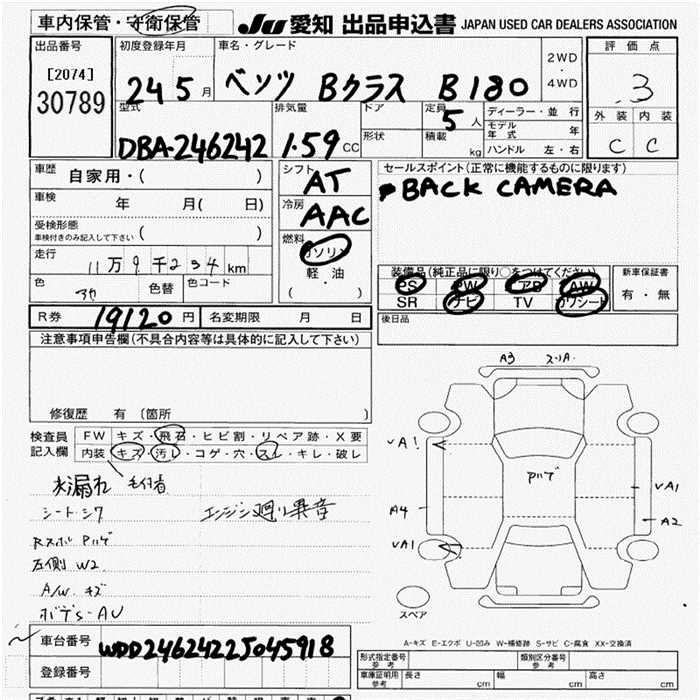 車内保管・守衛保管
JU 愛知 出品申込書 JAPAN USED CAR DEALERS ASSOCIATION
出品番号
[2074]
30789
初度登録年月
24 5 月
車名・グレード
ベンツ Bクラス B180
2WD
・
4WD
評価点
3
外装 内装
C C
型式
DBA-246242
排気量
1.59 CC
ドア
形状
定員
5 人
積載
kg
ディーラー・並行
モデル年式 年
ハンドル 左・右
車歴
自家用・( )
車検
年 月( 日)
受検形態
車検付きのみ記入して下さい ( )
走行
11万9千234km
色
色替
色コード
シフト
AT
冷房
AAC
燃料
ガソリン
軽・油
( ・ )
セールスポイント(正常に機能するものに限ります)
BACK CAMERA
装備品(純正品に限り○をつけてください)
PS PW AB AW
SR ナビ TV カワシート
新車保証書
有・無
後日品
R券 19120円
名変期限 月 日
注意事項申告欄(不具合内容等は具体的に記入して下さい)
修復歴 有 (箇所 )
検査員
記入欄
FW キズ・飛石・ヒビ割・リペア跡・X要
内装 キズ・汚レ・コゲ・穴・スレ・キレ・破レ
水漏れ
シートシワ
エンジン廻り異音
左側 W2
A/W キズ
A3 スリA
A1
A4
A1
A1
A2
スペア
A-キズ E-エクボ U-凹み W-補修跡 S-サビ C-腐食 XX-交換済
車台番号
WDD2462422J045918
登録番号
形式指定番号
参考
類別区分番号
参考
車庫証明用
参考
長さ cm
幅 cm
高さ cm